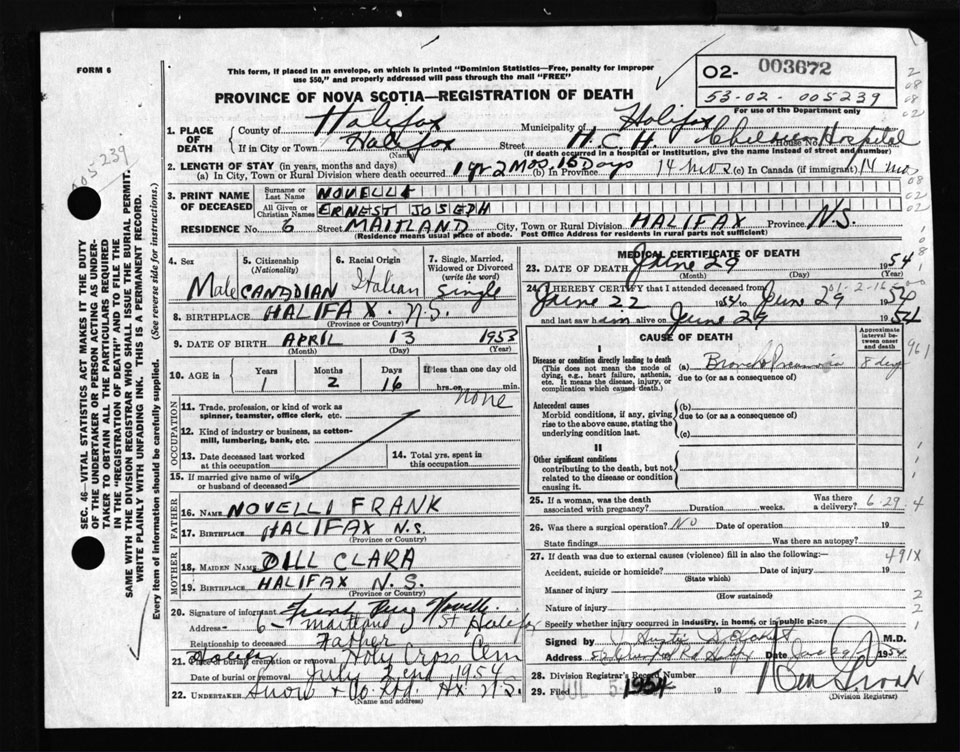 FORM 6
This form, if placed in an envelope, on which is printed "Dominion Statistics—Free, penalty for improper
use $50," and properly addressed will pass through the mail "FREE"
02- 003672
53-02-005239
For use of the Department only
PROVINCE OF NOVA SCOTIA—REGISTRATION OF DEATH
005239
SEC. 46—VITAL STATISTICS ACT MAKES IT THE DUTY
OF THE UNDERTAKER OR PERSON ACTING AS UNDER-
TAKER TO OBTAIN ALL THE PARTICULARS REQUIRED
IN THE "REGISTRATION OF DEATH" AND TO FILE THE
SAME WITH THE DIVISION REGISTRAR WHO SHALL ISSUE THE BURIAL PERMIT.
WRITE PLAINLY WITH UNFADING INK. THIS IS A PERMANENT RECORD.
Every item of information should be carefully supplied. (See reverse side for instructions.)
1. PLACE OF DEATH County of Halifax Municipality of Halifax
If in City or Town Halifax Street H.C.H. House No. Hospital
(Name) (If death occurred in a hospital or institution, give the name instead of street and number)
2. LENGTH OF STAY (in years, months and days)
(a) In City, Town or Rural Division where death occurred 1 yr 2 Mos. 16 Days (b) In Province 14 mos (c) In Canada (if immigrant) 14 mos
3. PRINT NAME OF DECEASED Surname or Last Name NOVELLI
All Given or Christian Names ERNEST JOSEPH
RESIDENCE No. 6 Street MAITLAND City, Town or Rural Division HALIFAX Province N.S.
(Residence means usual place of abode. Post Office Address for residents in rural parts not sufficient)
4. Sex 5. Citizenship (Nationality) 6. Racial Origin 7. Single, Married, Widowed or Divorced (write the word)
Male CANADIAN Italian Single
8. BIRTHPLACE HALIFAX. N.S.
(Province or Country)
9. DATE OF BIRTH APRIL 13 1953
(Month) (Day) (Year)
10. AGE in Years Months Days If less than one day old
1 2 16 hrs. or min.
OCCUPATION
none
11. Trade, profession, or kind of work as
spinner, teamster, office clerk, etc.
12. Kind of industry or business, as cotton-
mill, lumbering, bank, etc.
13. Date deceased last worked
at this occupation
14. Total yrs. spent in
this occupation
15. If married give name of wife
or husband of deceased
FATHER
16. NAME NOVELLI FRANK
17. BIRTHPLACE HALIFAX N.S.
(Province or Country)
MOTHER
18. MAIDEN NAME DILL CLARA
19. BIRTHPLACE HALIFAX N.S.
(Province or Country)
20. Signature of informant Frank Novelli
Address 6 maitland St Halifax
Relationship to deceased Father
21. Place of burial, cremation or removal Holy Cross Cem
Date of burial or removal July 2nd 1954
22. UNDERTAKER Snow & Co Ltd. Hx N.S.
(Name and address)
MEDICAL CERTIFICATE OF DEATH
23. DATE OF DEATH June 29 1954
(Month) (Day)
24. I HEREBY CERTIFY that I attended deceased from
June 22 1954 to June 29 1954
and last saw him alive on June 29 1954
CAUSE OF DEATH
Approximate interval between onset and death
I
Disease or condition directly leading to death
(This does not mean the mode of
dying, e.g., heart failure, asthenia,
etc. It means the disease, injury, or
complication which caused death.)
(a) Bronchopneumonia 8 days
due to (or as a consequence of)
Antecedent causes
Morbid conditions, if any, giving
rise to the above cause, stating the
underlying condition last.
(b)
due to (or as a consequence of)
(c)
II
Other significant conditions
contributing to the death, but not
related to the disease or condition
causing it.
25. If a woman, was the death
associated with pregnancy? Duration weeks. Was there a delivery? 6.29.4
26. Was there a surgical operation? No Date of operation 19
State findings Was there an autopsy?
27. If death was due to external causes (violence) fill in also the following:— 491X
Accident, suicide or homicide? Date of injury 19
(State which)
Manner of injury
(How sustained)
Nature of injury
Specify whether injury occurred in industry, in home, or in public place
Signed by M.D.
Address Date 1954
28. Division Registrar's Record Number
29. Filed JUL 5 1954 19
(Division Registrar)